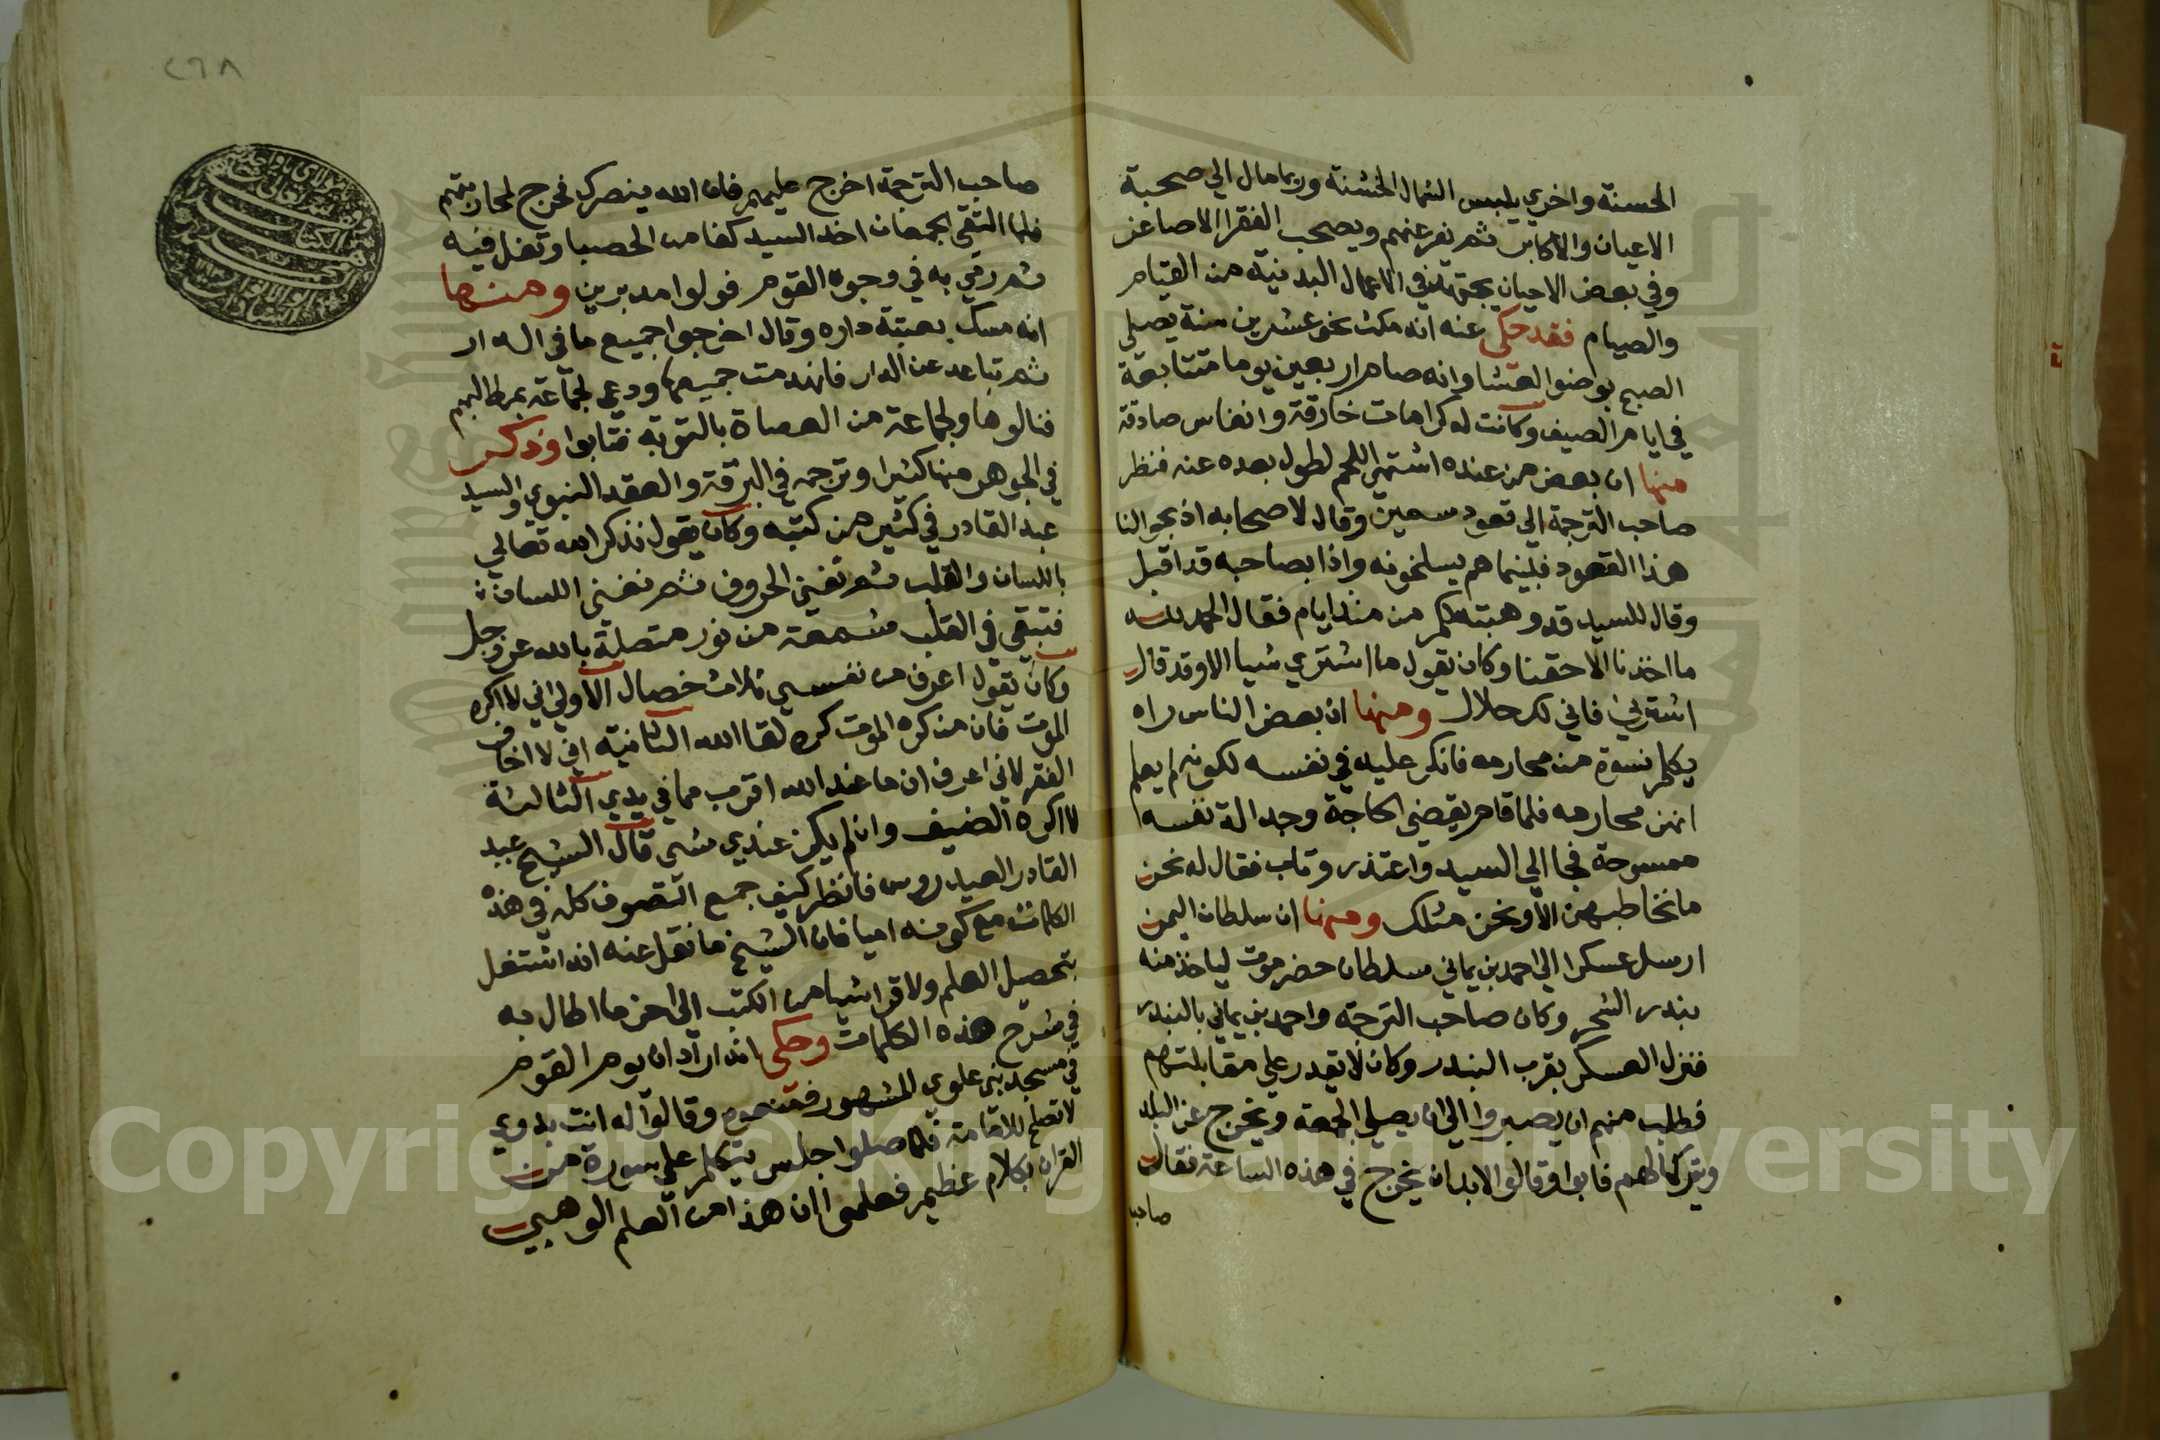 الحسنة واخري يلبس الشمال الخشنة وربما مال الي صحبة
الاعيان والاكابر ثم يفر عنهم ويصحب الفقرا الاصاغر
وفي بعض الاحيان يجتهد في الاعمال البدنية من القيام
والصيام فقد حكي عنه انه مكث نحو عشرين سنة يصلي
الصبح بوضوا العشا وانه صام اربعين يوما متتابعة
في ايام الصيف وكانت له كرامات خارقة وانفاس صادقة
منها ان بعض من عنده اشتهي اللحم لطول بعده عنه فنظر
صاحب الترجمة الي قعود سمين وقال لاصحابه اذبحوا لنا
هذا القعود فبينما هم يسلخونه واذا بصاحبه قد اقبل
وقال للسيد قد وهبته لكم من منذ ايام فقال الحمد لله
ما اخذنا الا حقنا وكان يقول ما اشتري شيا الا وقد قال
اشترني فاني لك حلال ومنها ان بعض الناس راه
يكلم نسوة من محارمه فانكر عليه في نفسه لكونه لم يعلم
انهن محارمه فلما قام يقضي الحاجة وجد الة نفسه
ممسوحة فجا الي السيد واعتذر وتاب فقال له نحن
ما نخاطبهن الا ونحن مثلك ومنها ان سلطان اليمن
ارسل عسكرا الي احمد بن يماني سلطان حضرموت لياخذ منه
بندر الشحر وكان صاحب الترجمة واحمد بن يماني بالبندر
فنزل العسكر بقرب البندر وكان لا يقدر علي مقابلتهم
فطلب منهم ان يصبروا الي ان يصلي الجمعة ويخرج عن البلد
ويتركها لهم فابوا وقالوا لابد ان يخرج في هذه الساعة فقال
صاحب
٢٦٨
صاحب الترجمة اخرج عليهم فان الله ينصرك فخرج لمحاربتهم
فلما التقي الجمعان اخذ السيد كفا من الحصبا وتفل فيه
ثم رمي به في وجوه القوم فولوا مدبرين ومنها
انه مسك بعتبة داره وقال اخرجوا جميع ما في الدار
ثم تباعد عن الدار فانهدمت جميعها ودعي لجماعة بمطالبهم
فنالوها ولجماعة من العصاة بالتوبة فتابوا وذكر
في الجوهر منها كثيرا وترجمه في البرقة والعقد النبوي والسيد
عبد القادر في كثير من كتبه وكان يقول نذكر الله تعالي
باللسان والقلب ثم تفني الحروف ثم نفني اللسان
فتبقي في القلب شمعة من نور متصلة بالله عز وجل
وكان يقول اعرف من نفسي ثلاث خصال الاولي اني لا اكره
الموت فان من كره الموت كره لقا الله الثانية اني لا اخاف
الفقر لاني اعرف ان ما عند الله اقرب مما في يدي الثالثة
لا اكره الضيف وان لم يكن عندي شي قال الشيخ عبد
القادر العيدروس فانظر كيف جمع التصوف كله في هذه
الكلمات مع كونه اميا فان الشيخ ما نقل عنه انه اشتغل
بتحصيل العلم ولا قرا شيا من الكتب الي اخر ما اطال به
في شرح هذه الكلمات وحكي انه اراد ان يوم القوم
في مسجد بني علوي المشهور فمنعوه وقالوا له انت بدوي
لا تصلح للامامة فلما صلوا جلس يتكلم علي سورة من
القران بكلام عظيم فعلموا ان هذا من العلم الوهبي
Copyright © King Saud University